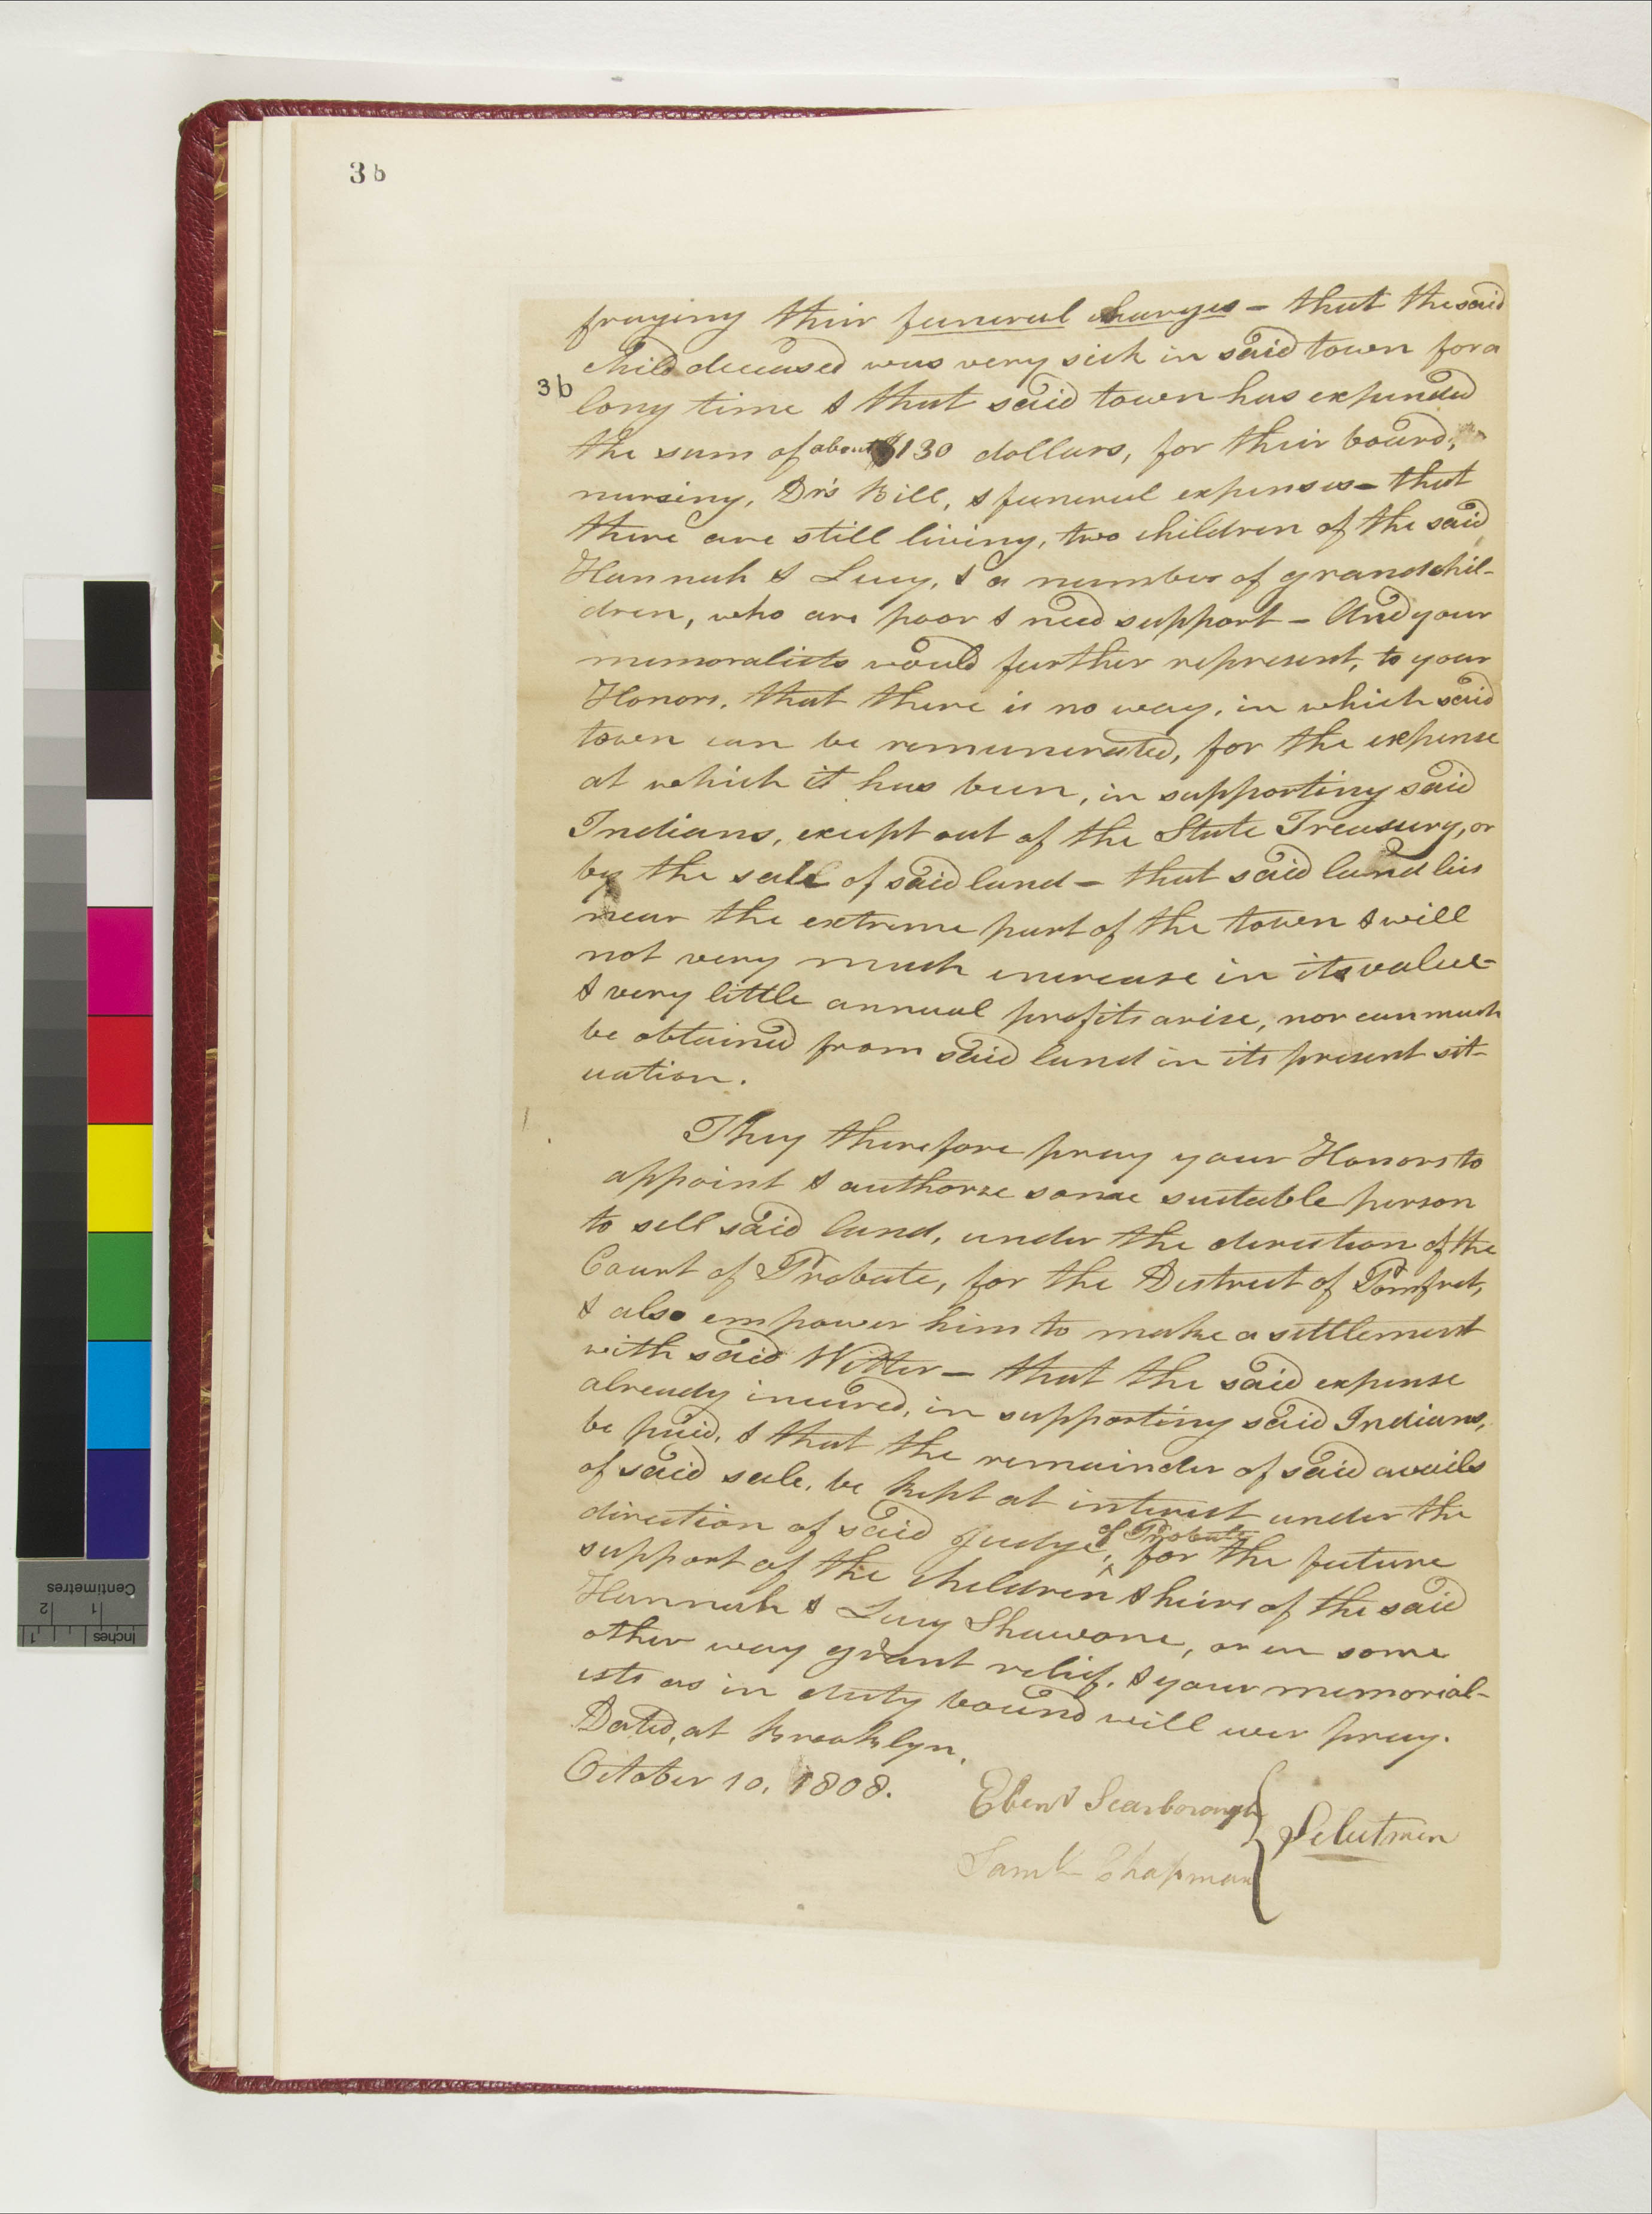 3b
fraying their funeral charges – that the said
child deceased was very sick in said town for a
3b
long time & that said town has expended
the sum of about $130 dollars, for their board,
nursing, Dr's Bill, & funeral expenses – that
there are still living, two children of the said
Hannah & Lucy, & a number of grandchil-
dren, who are poor & need support – And your
memoralists would further represent, to your
Honors, that there is no way, in which said
town can be remunerated, for the expense
at which it has been, in supporting said
Indians, except out of the State Treasury, or
by the sale of said land – that said land lies
near the extreme part of the town & will
not very much increase in its value –
& very little annual profits arise, nor can much
be obtained from said land in its present sit-
uation.
They therefore pray your Honors to
appoint & authorze some suitable person
to sell said land, under the direction of the
Court of Probate, for the District of Pomfret,
& also empower him to make a settlement
with said Witter – that the said expense
already incured, in supporting said Indians,
be paid, & that the remainder of said avails
of said sale, be kept at interest under the
direction of said Judge of Probate, for the future
support of the children & heirs of the said
Hannah & Lucy Shawone, or in some
other way grant relief, & your memorial-
ists as in duty bound will ever pray.
Dated, at Brooklyn,
October 10, 1808.
Ebenr Scarborough
Selectmen
Samll Chapman
Centimetres
1 2
Inches
1